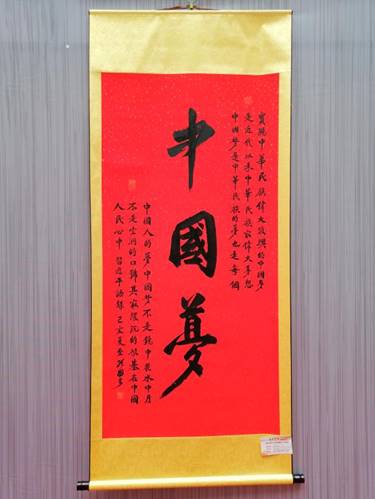 實現中華民族偉大復興的中國夢
是近代以來中華民族最偉大夢想
中國夢是中華民族的夢也是每個
中國夢
中國人的夢中國夢不是鏡中花水中月
不是空洞的口號其最深沉的根基在中國
人民心中 習近平語錄 己亥夏